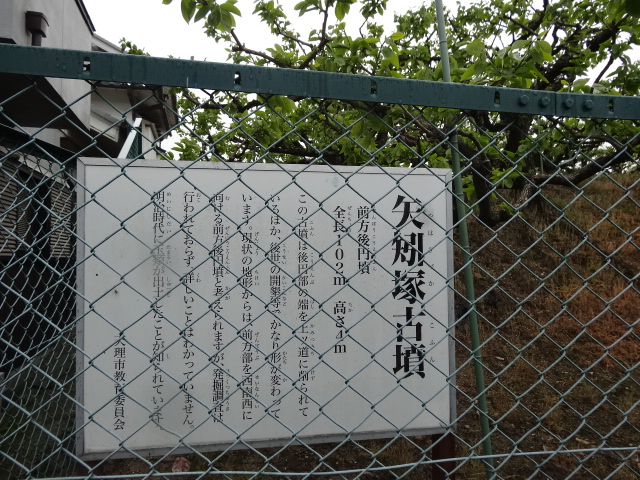 矢矧塚古墳
前方後円墳
全長102m 高さ4m
この古墳は後円部の端を上ッ道に削られて
いるほか、後世の開墾等でかなり形が変わって
います。現状の地形からは、前方部を西南西に
向ける前方後円墳と考えられますが、発掘調査は
行われておらず、詳しいことはわかっていません。
明治時代に が出土したことが知られています。
天理市教育委員会